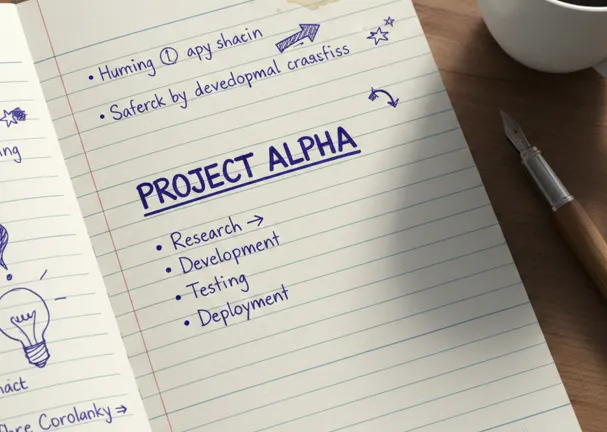 ning
nact
bre Corolanky →
• Huming ① apy shacin
• Saferck by devedopmal cragsfiss
PROJECT ALPHA
• Research →
• Development
• Testing
• Deployment